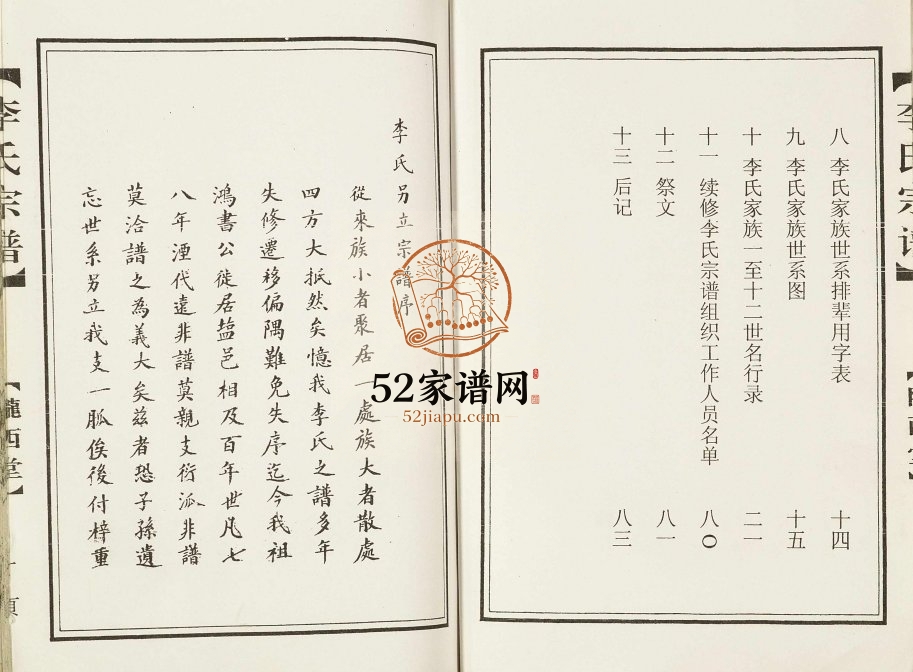 李氏宗谱
八 李氏家族世系排辈用字表 十四
九 李氏家族世系图 十五
十 李氏家族一至十二世名行录 二一
十一 续修李氏宗谱组织工作人员名单 八〇
十二 祭文 八一
十三 后记 八三
李氏另立宗譜序
從來族小者聚居一處族大者散處
四方大抵然矣憶我李氏之譜多年
失修遷移偏隅難免失序迄今我祖
鴻書公徙居盐邑相及百年世凡七
八年湮代遠非譜莫親支衍派非譜
莫洽譜之為義大矣兹者恐子孫遺
忘世系另立我支一脈俟後付梓重
李氏宗譜
隴西堂
頁
52家谱网
52jiapu.com